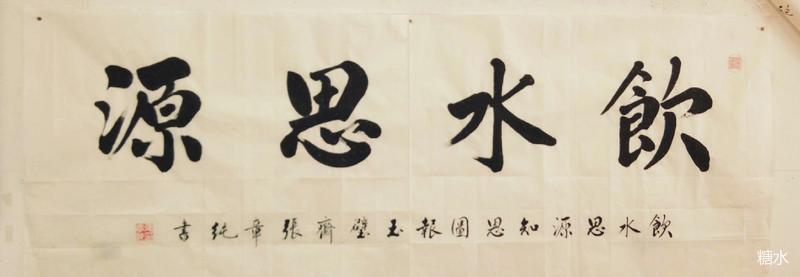 飲水思源
飲水思源知思圖報玉璧齋張章純書
糖水